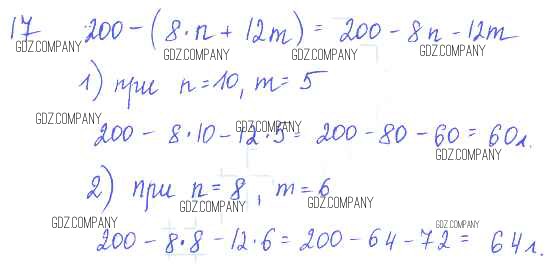 17 200 - (8·n + 12m) = 200 - 8n - 12m
GDZ.COMPANY GDZ.COMPANY GDZ.COMPANY GDZ.COMPANY
1) при n=10, m=5
GDZ.COMPANY
200 - 8·10 - 12·5 = 200 - 80 - 60 = 60л.
GDZ.COMPANY GDZ.COMPANY
2) при n=8, m=6
GDZ.COMPANY GDZ.COMPANY
GDZ.COMPANY GDZ.COMPANY
200 - 8·8 - 12·6 = 200 - 64 - 72 = 64л.
GDZ.COMPANY